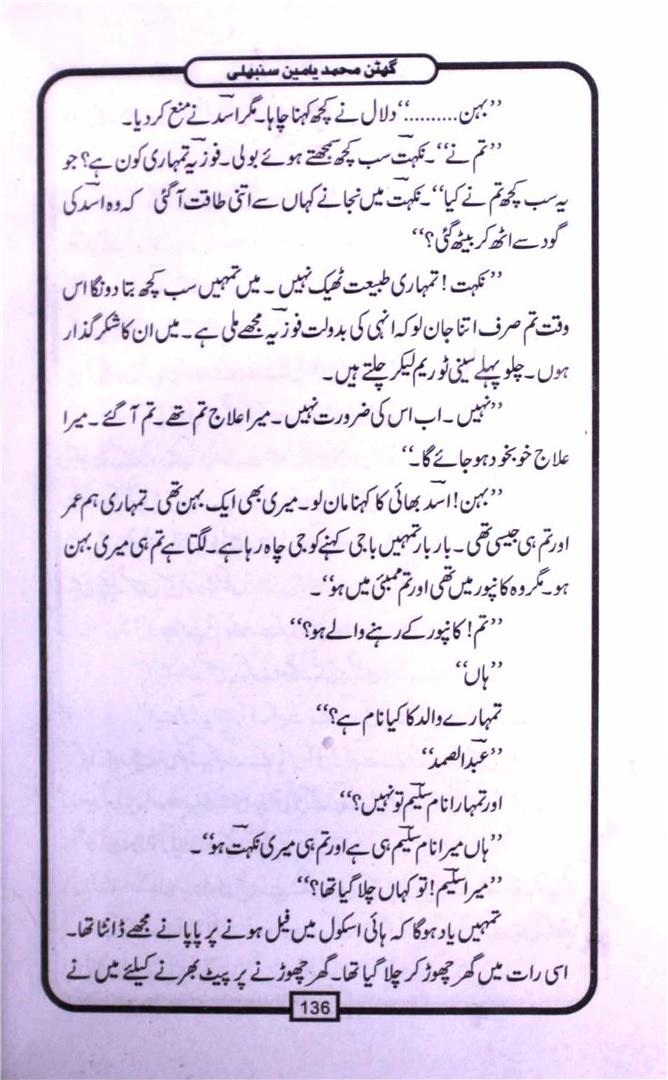 گھٹن محمد یامین سنبھلی
’’بہن..........‘‘ دلال نے کچھ کہنا چاہا۔ مگر اسد نے منع کر دیا۔
’’تم نے‘‘۔ نکہت سب کچھ سمجھتے ہوئے بولی۔ فوزیہ تمہاری کون ہے؟ جو
یہ سب کچھ تم نے کیا‘‘۔ نکہت میں نجانے کہاں سے اتنی طاقت آ گئی کہ وہ اسد کی
گود سے اٹھ کر بیٹھ گئی؟‘‘
’’نکہت! تمہاری طبیعت ٹھیک نہیں۔ میں تمہیں سب کچھ بتا دونگا اس
وقت تم صرف اتنا جان لو کہ انہی کی بدولت فوزیہ مجھے ملی ہے۔ میں ان کا شکر گذار
ہوں۔ چلو پہلے سینی ٹوریم لیکر چلتے ہیں۔
’’نہیں۔ اب اس کی ضرورت نہیں۔ میرا علاج تم تھے۔ تم آ گئے۔ میرا
علاج خوبخود ہو جائے گا۔‘‘
’’بہن! اسد بھائی کا کہنا مان لو۔ میری بھی ایک بہن تھی۔ تمہاری ہم عمر
اور تم ہی جیسی تھی۔ بار بار تمہیں باجی کہنے کو جی چاہ رہا ہے۔ لگتا ہے تم ہی میری بہن
ہو۔ مگر وہ کانپور میں تھی اور تم ممبئی میں ہو‘‘۔
’’تم! کانپور کے رہنے والے ہو؟‘‘
’’ہاں‘‘
تمہارے والد کا کیا نام ہے؟‘‘
’’عبد الصمد‘‘
اور تمہارا نام سلیم تو نہیں؟‘‘
’’ہاں میرا نام سلیم ہی ہے اور تم ہی میری نکہت ہو‘‘۔
’’میرا سلیم! تو کہاں چلا گیا تھا؟‘‘
تمہیں یاد ہوگا کہ ہائی اسکول میں فیل ہونے پر پاپا نے مجھے ڈانٹا تھا۔
اسی رات میں گھر چھوڑ کر چلا گیا تھا۔ گھر چھوڑنے پر پیٹ بھرنے کیلئے میں نے
136